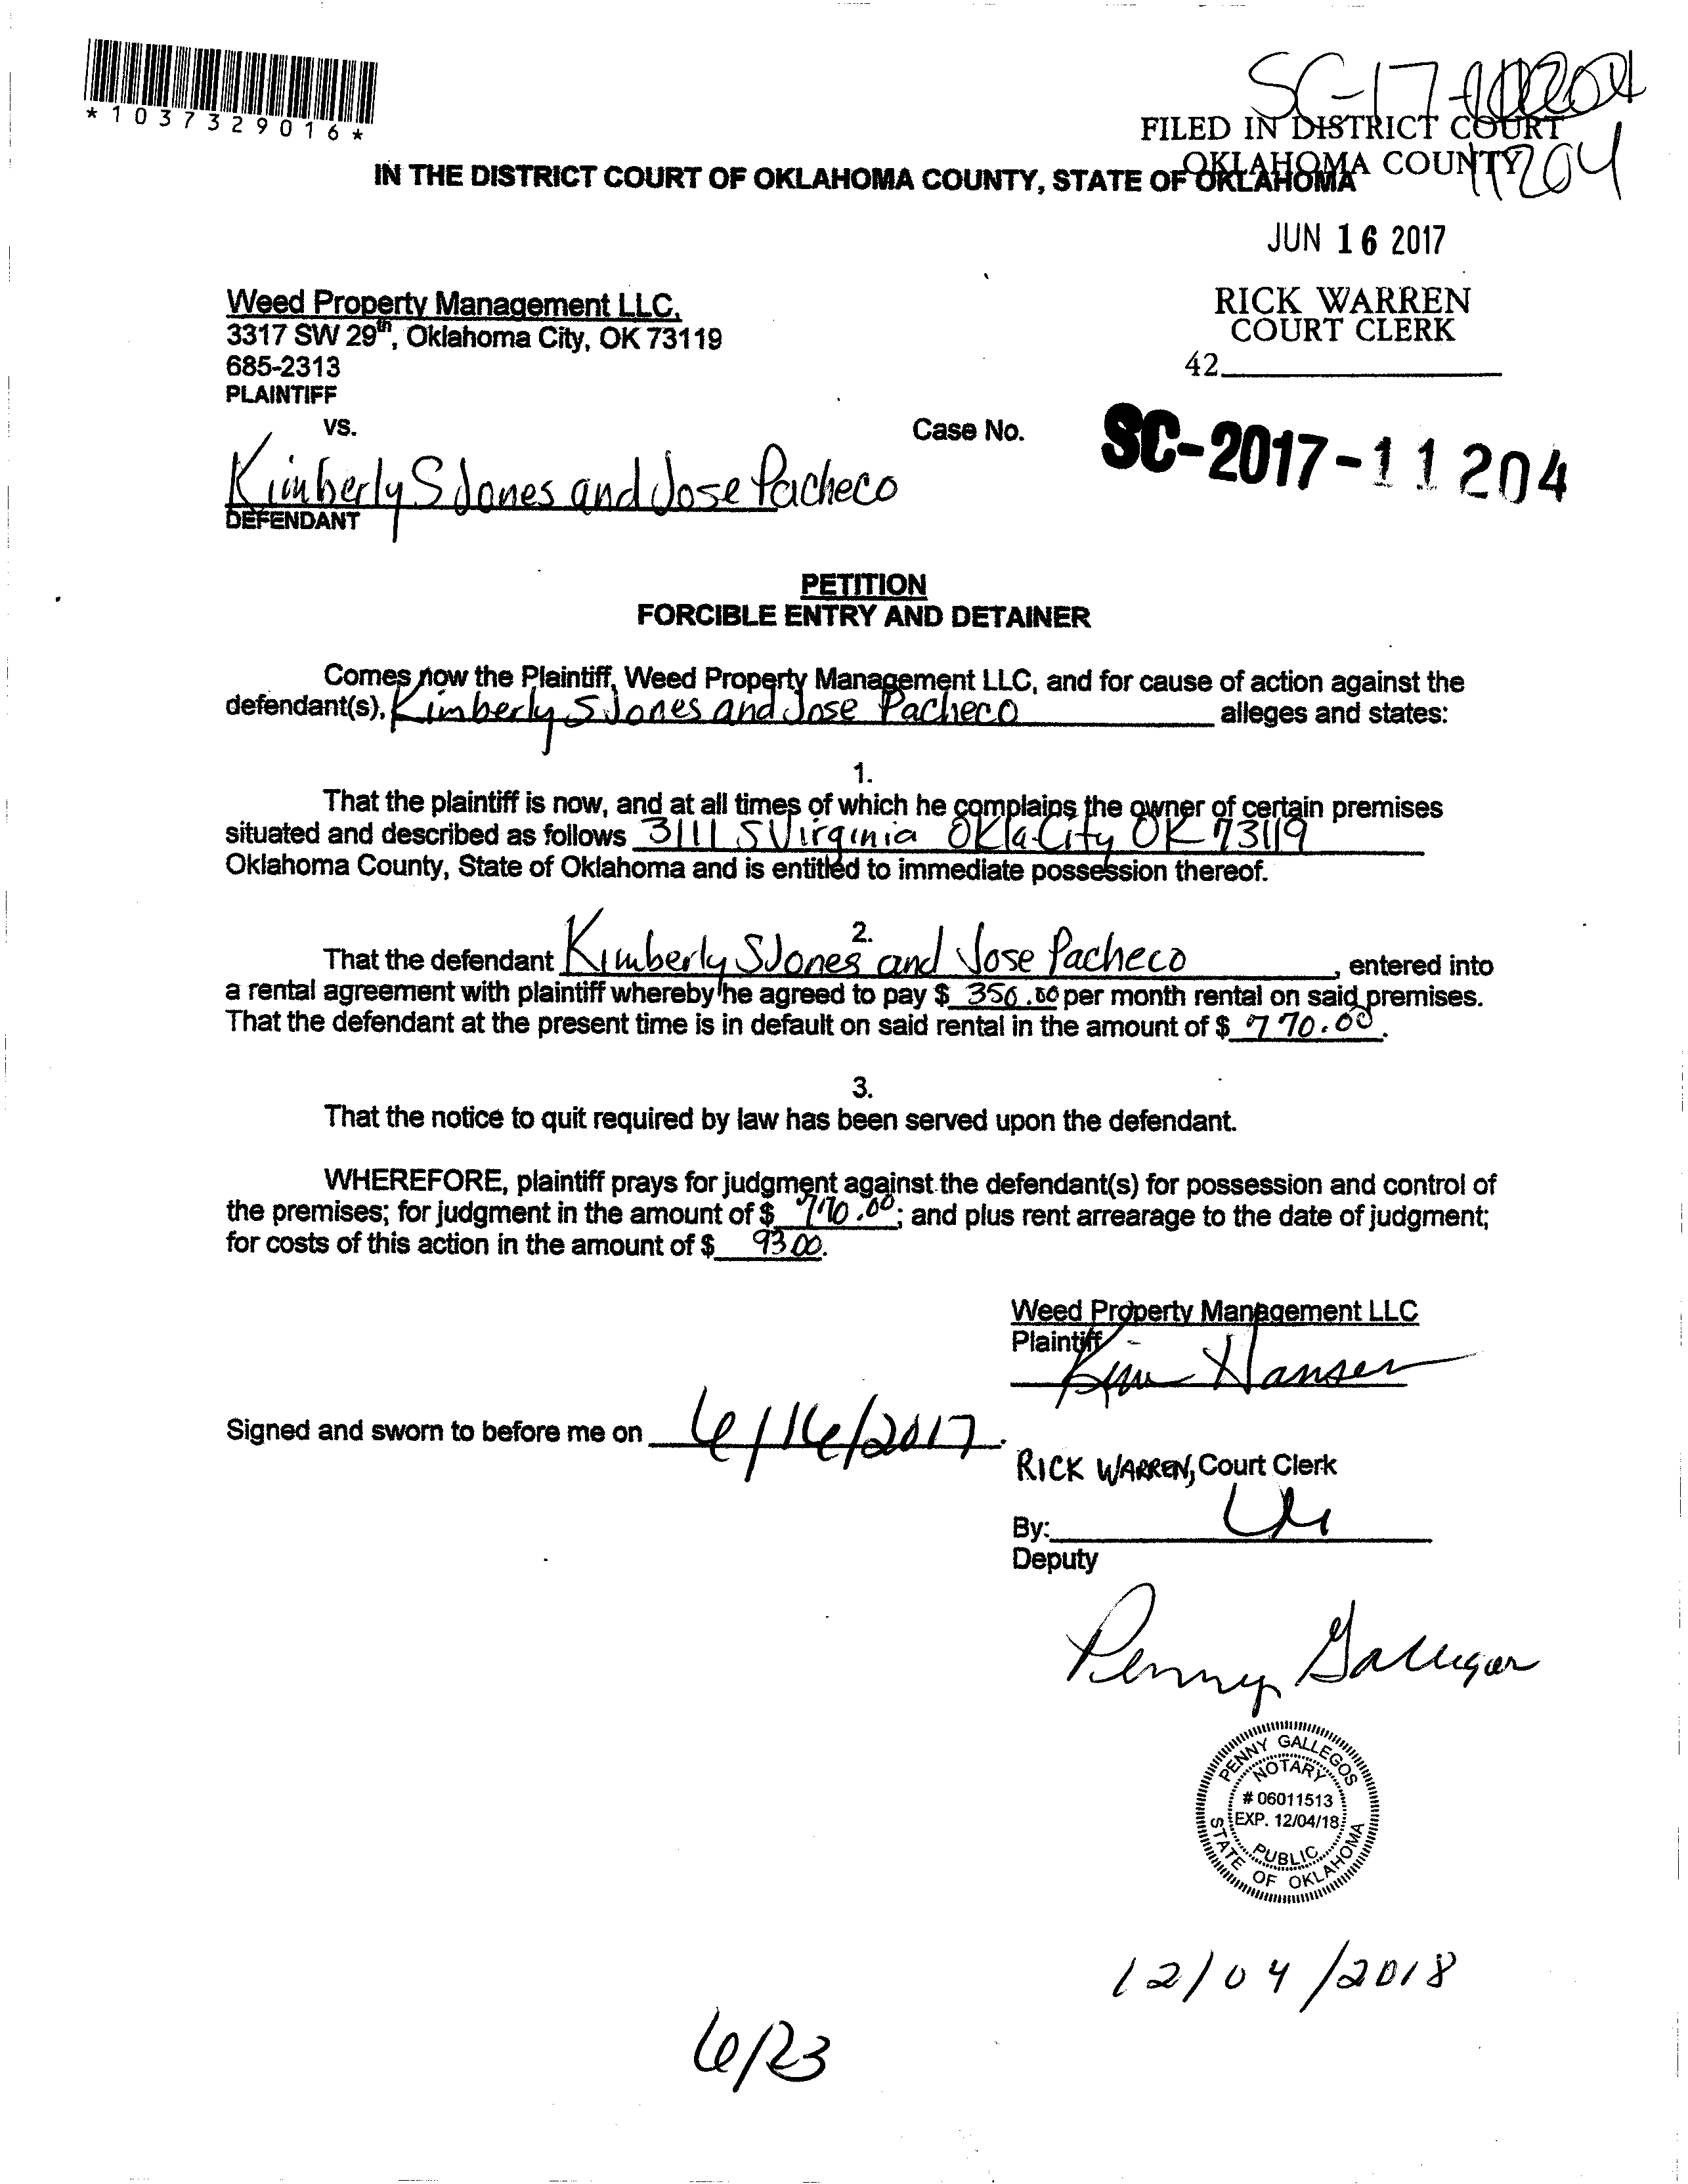 *1037329016*
SC-17-
11204
FILED IN DISTRICT COURT
OKLAHOMA COUNTY
IN THE DISTRICT COURT OF OKLAHOMA COUNTY, STATE OF OKLAHOMA
JUN 16 2017
RICK WARREN
COURT CLERK
42
Weed Property Management LLC.
3317 SW 29th, Oklahoma City, OK 73119
685-2313
PLAINTIFF
vs.
Case No. SC-2017-11204
Kimberly S Jones and Jose Pacheco
DEFENDANT
PETITION
FORCIBLE ENTRY AND DETAINER
Comes now the Plaintiff, Weed Property Management LLC, and for cause of action against the
defendant(s), Kimberly S Jones and Jose Pacheco alleges and states:
1.
That the plaintiff is now, and at all times of which he complains the owner of certain premises
situated and described as follows 3111 S Virginia Okla City OK 73119
Oklahoma County, State of Oklahoma and is entitled to immediate possession thereof.
2.
That the defendant Kimberly S Jones and Jose Pacheco, entered into
a rental agreement with plaintiff whereby he agreed to pay $ 350.00 per month rental on said premises.
That the defendant at the present time is in default on said rental in the amount of $ 770.00.
3.
That the notice to quit required by law has been served upon the defendant.
WHEREFORE, plaintiff prays for judgment against the defendant(s) for possession and control of
the premises; for judgment in the amount of $ 770.00; and plus rent arrearage to the date of judgment;
for costs of this action in the amount of $ 93.00.
Weed Property Management LLC
Plaintiff
Kim Hansen
Signed and sworn to before me on 6/16/2017.
RICK WARREN, Court Clerk
By:
Deputy
Penny Gallegos
PENNY GALLEGOS
NOTARY
# 06011513
EXP. 12/04/18
PUBLIC
STATE OF OKLAHOMA
12/04/2018
6/23